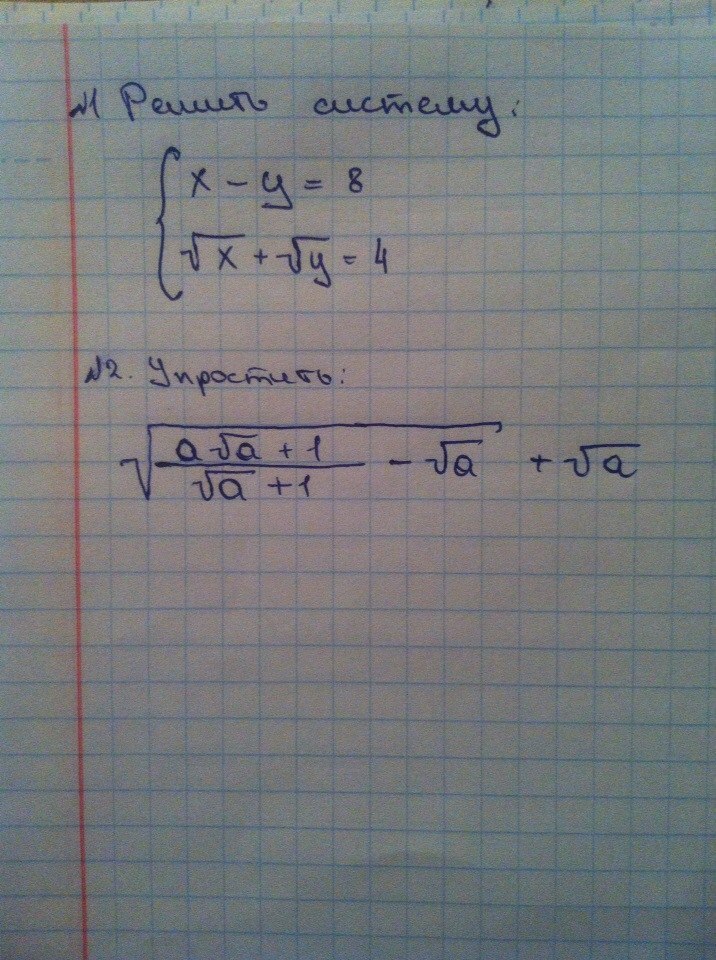 №1 Решить систему:
{ x - y = 8
√x + √y = 4
№2. Упростить:
√((a√a + 1)/(√a + 1) - √a) + √a